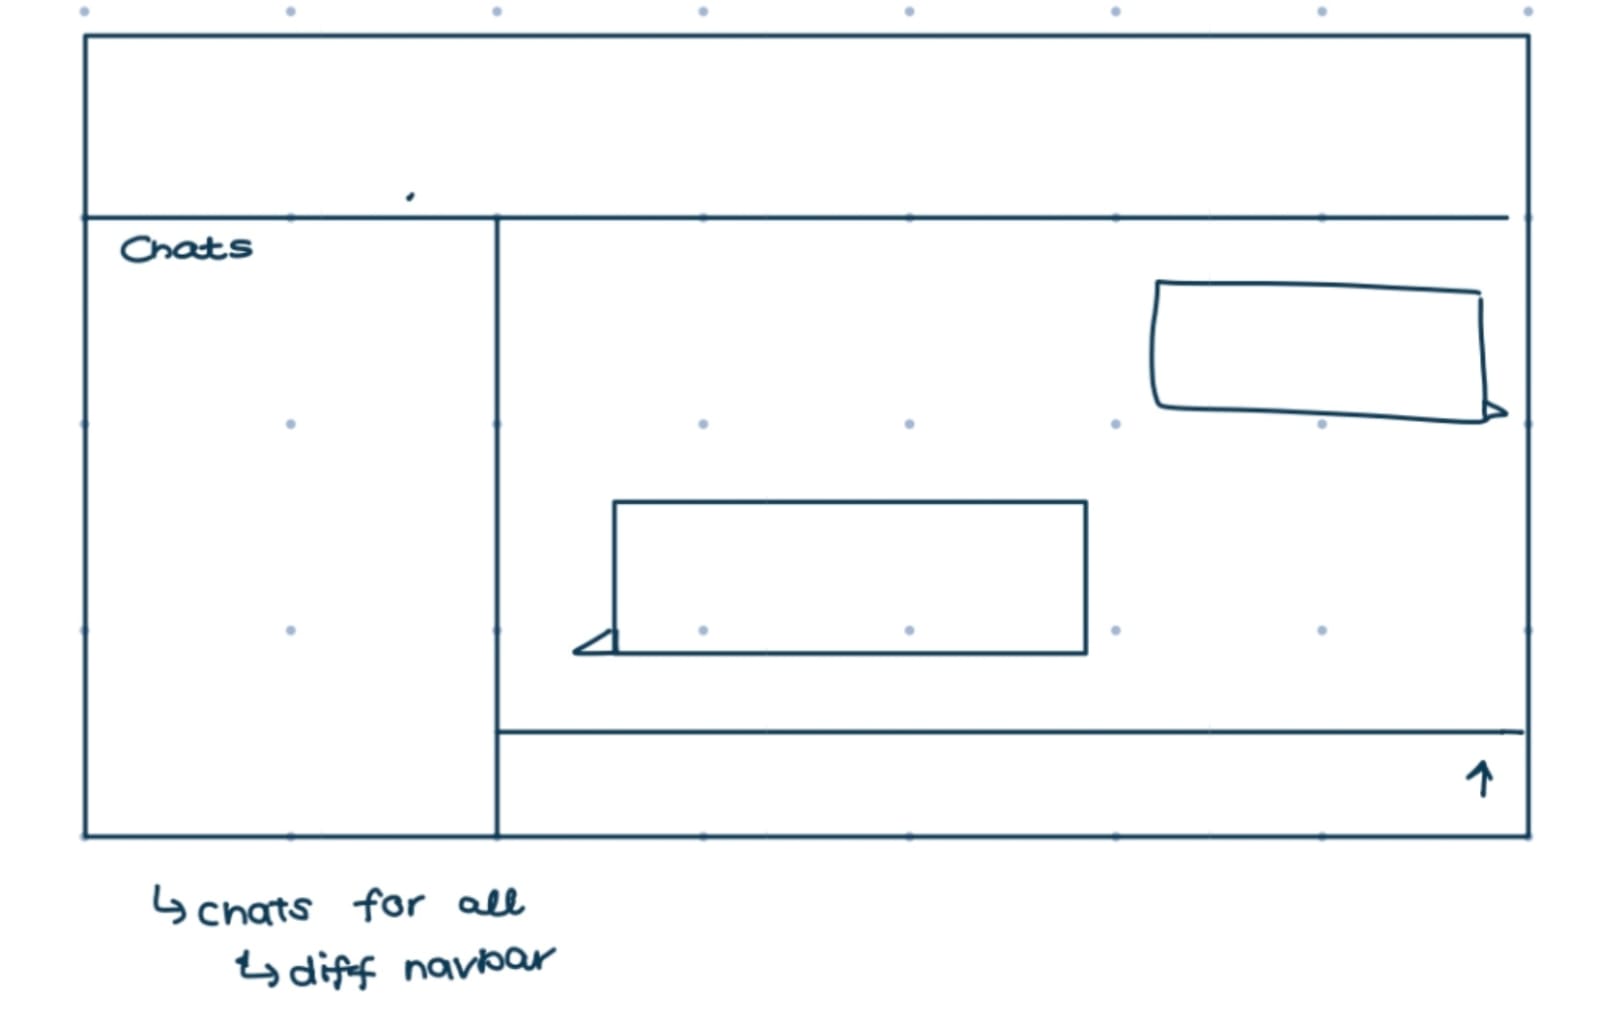 Chats
↳ chats for all
↳ diff navbar